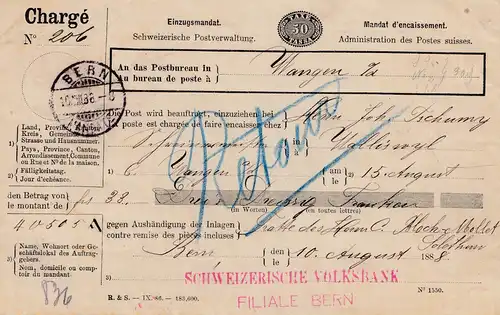 Chargé
Nº 206
Einzugsmandat.
Schweizerische Postverwaltung.
TAXE
50
TAXXA
Mandat d'encaissement.
Administration des Postes suisses.
An das Postbureau in
Au bureau de poste à
Wangen a/a
BERN
Die Post wird beauftragt, einzuziehen bei
La poste est chargée de faire encaisser chez
Herrn Joh. Tschumy
Walliswyl
1) Land, Provinz, Kanton
Kreis, Gemeinde
Strasse und Hausnummer.
Pays, Province, Canton,
Arrondissement, Commune
ou Rue et Nº de la maison.
2) Fälligkeitstag.
Jour d'échéance.
Retour
1) Wangen
am
le
2) 15 August
den Betrag von
le montant de
frs 33.
Drei & Dreissig Franken
(in Worten) (en toutes lettres)
40505
gegen Aushändigung der Inlagen
contre remise des pièces incluses
Tratte des Herrn C. Bloch-Mollet
Solothurn
3) Name, Wohnort oder Ge-
schäftslokal des Auftrag-
gebers.
Nom, domicile ou comp-
toir du mandant.
Bern
den
le
10 August 1888
3)
SCHWEIZERISCHE VOLKSBANK
FILIALE BERN
836
R. & S. — IX. 86. — 183,600.
Nº 1550.